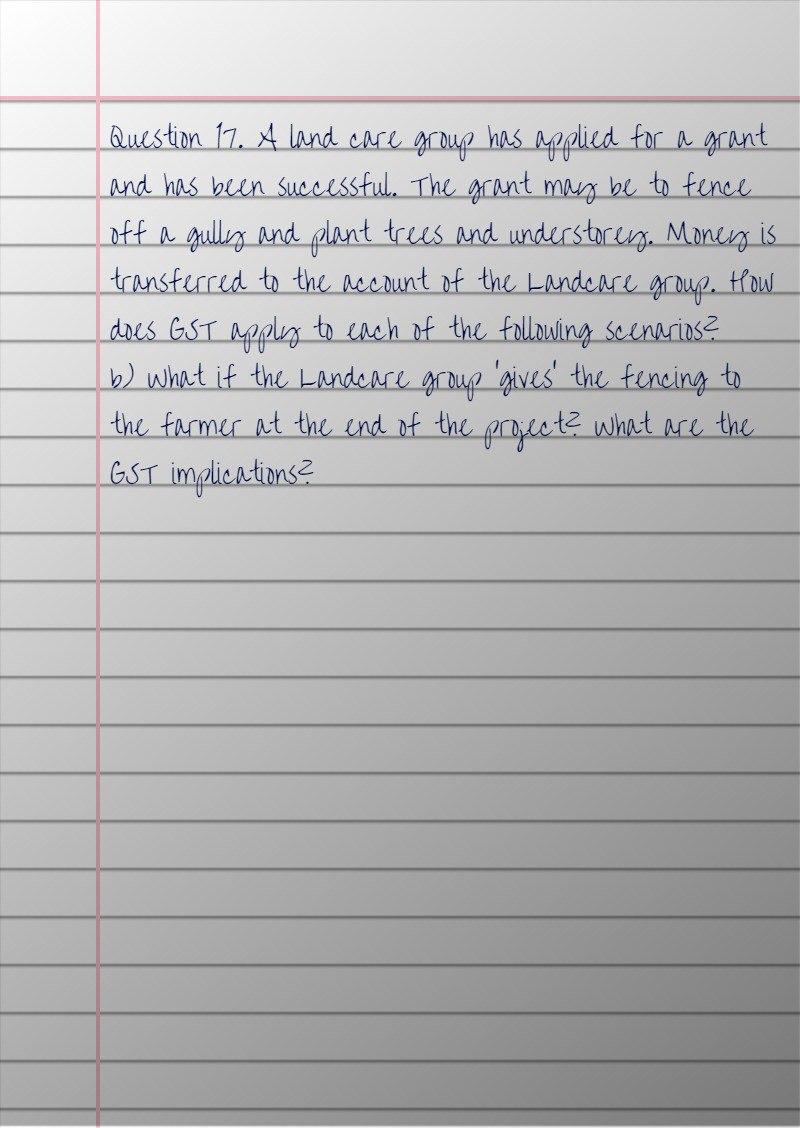 Question 17. A land care group has applied for a grant
and has been successful. The grant may be to fence
off a gully and plant trees and understorey. Money is
transferred to the account of the Landcare group. How
does GST apply to each of the following scenarios?
b) What if the Landcare group 'gives' the fencing to
the farmer at the end of the project? What are the
GST implications?